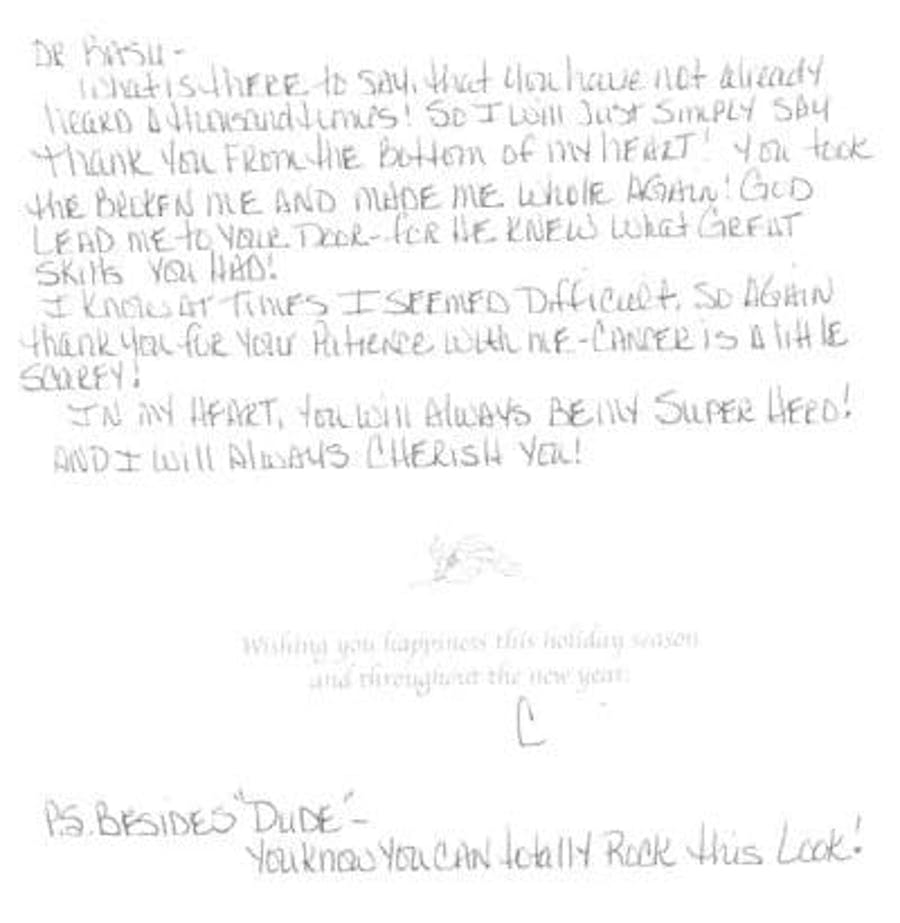 DR BASU-
What is there to say, that you have not already
heard a thousand times! So I will Just Simply say
thank you from the Bottom of my heart! You took
the Broken me and made me whole again! God
lead me to your Door-for He knew what Great
skills you had!
I know at times I seemed Difficult, so again
thank you for your Patience with me-Cancer is a little
scarey!
In my heart, you will always be my Super Hero!
And I will always cherish you!
Wishing you happiness this holiday season
and throughout the new year.
C
P.S. Besides "Dude"-
You know you can totally Rock this Look!